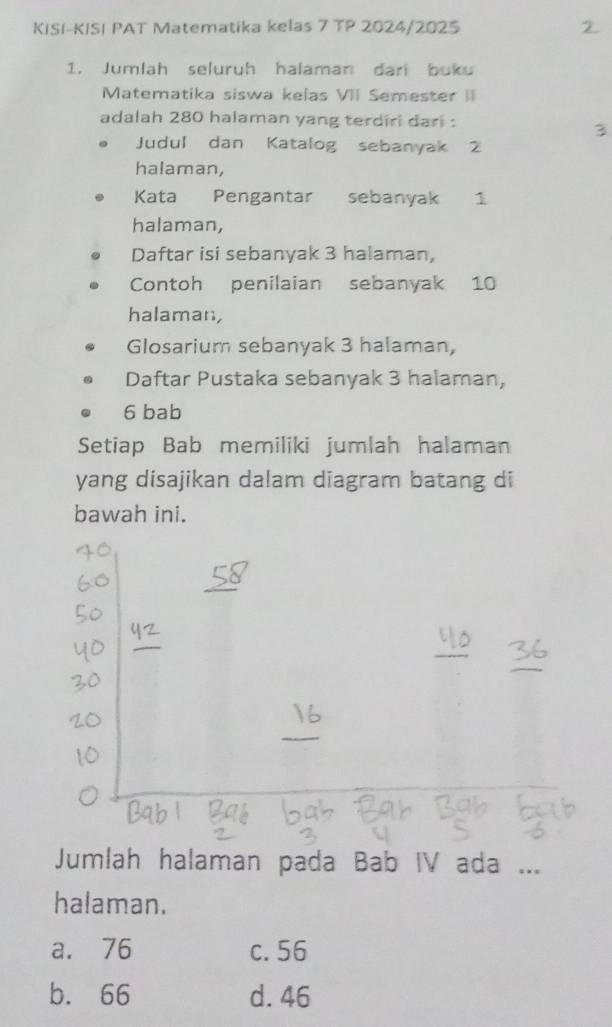 KISI-KISI PAT Matematika kelas 7 TP 2024/2025
2.
1. Jumlah seluruh halaman dari buku
Matematika siswa kelas VII Semester II
adalah 280 halaman yang terdiri dari :
3
• Judul dan Katalog sebanyak 2
halaman,
• Kata Pengantar sebanyak 1
halaman,
• Daftar isi sebanyak 3 halaman,
• Contoh penilaian sebanyak 10
halaman,
• Glosarium sebanyak 3 halaman,
• Daftar Pustaka sebanyak 3 halaman,
• 6 bab
Setiap Bab memiliki jumlah halaman
yang disajikan dalam diagram batang di
bawah ini.
70
60 58
50
40 42 40 36
30
20 16
10
0
Bab 1 Bab bab Bab Bab bab
2 3 4 5 6
Jumlah halaman pada Bab IV ada ...
halaman.
a. 76 c. 56
b. 66 d. 46